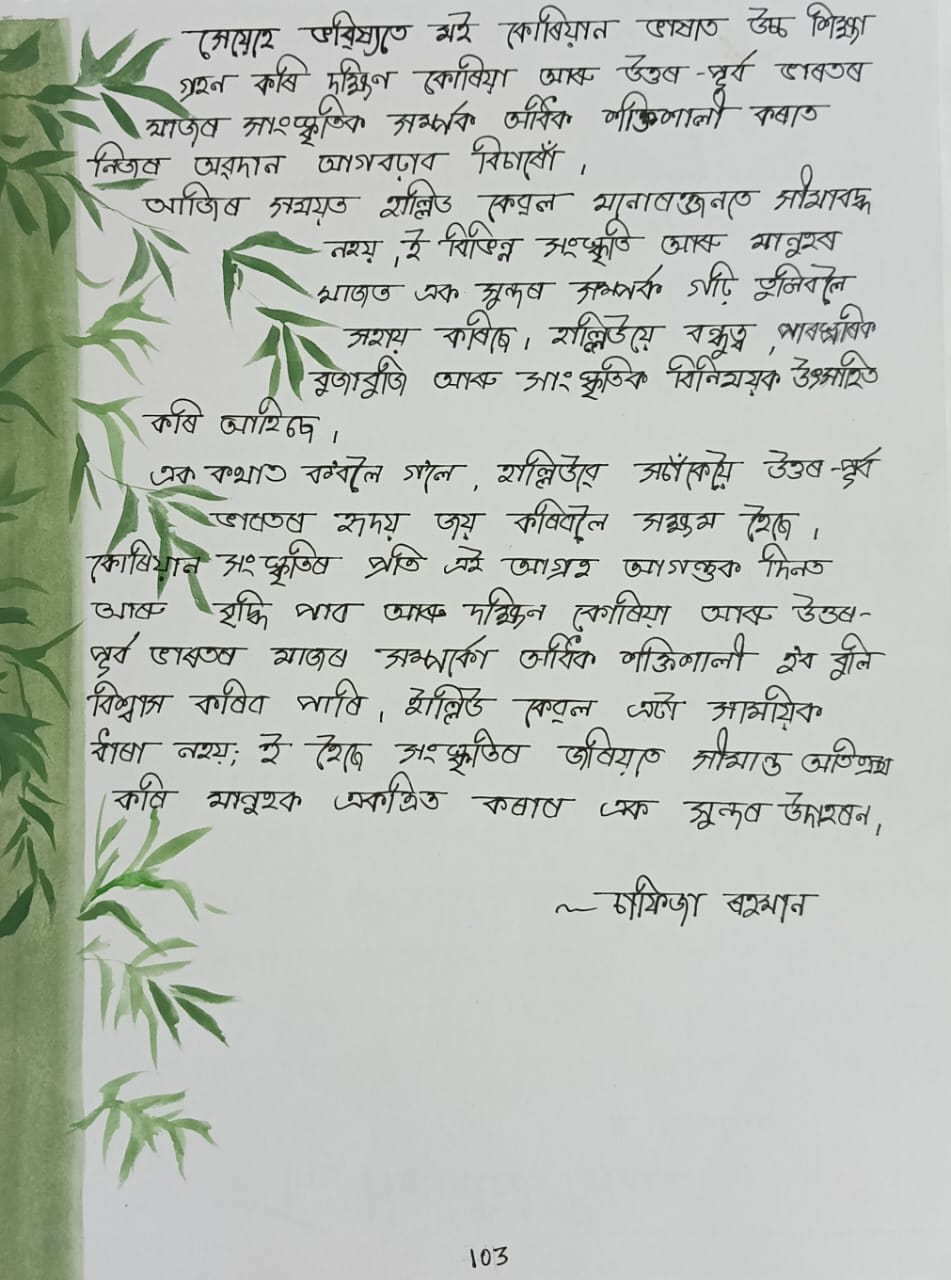 সেয়েহে ভৱিষ্যতে মই কোৰিয়ান ভাষাত উচ্চ শিক্ষা
গ্ৰহন কৰি দক্ষিণ কোৰিয়া আৰু উত্তৰ-পূৰ্ব ভাৰতৰ
মাজৰ সাংস্কৃতিক সম্পৰ্ক অধিক শক্তিশালী কৰাত
নিজৰ অৱদান আগবঢ়াব বিচাৰোঁ।
আজিৰ সময়ত হাল্লিউ কেৱল মনোৰঞ্জনতে সীমাবদ্ধ
নহয়, ই বিভিন্ন সংস্কৃতি আৰু মানুহৰ
মাজত এক সুন্দৰ সম্পৰ্ক গঢ়ি তুলিবলৈ
সহায় কৰিছে। হাল্লিউয়ে বন্ধুত্ব, পাৰস্পৰিক
বুজাবুজি আৰু সাংস্কৃতিক বিনিময়ক উৎসাহিত
কৰি আহিছে।
এক কথাত ক'বলৈ গ'লে, হাল্লিউৱে সঁচাকৈয়ে উত্তৰ-পূৰ্ব
ভাৰতৰ হৃদয় জয় কৰিবলৈ সক্ষম হৈছে।
কোৰিয়ান সংস্কৃতিৰ প্ৰতি এই আগ্ৰহ আগন্তুক দিনত
আৰু বৃদ্ধি পাব আৰু দক্ষিন কোৰিয়া আৰু উত্তৰ-
পূৰ্ব ভাৰতৰ মাজৰ সম্পৰ্কো অধিক শক্তিশালী হ'ব বুলি
বিশ্বাস কৰিব পাৰি। হাল্লিউ কেৱল এটা সাময়িক
ধাৰা নহয়; ই হৈছে সংস্কৃতিৰ জৰিয়তে সীমান্ত অতিক্ৰম
কৰি মানুহক একত্ৰিত কৰাৰ এক সুন্দৰ উদাহৰন।
~ চাফিজা ৰহমান
103